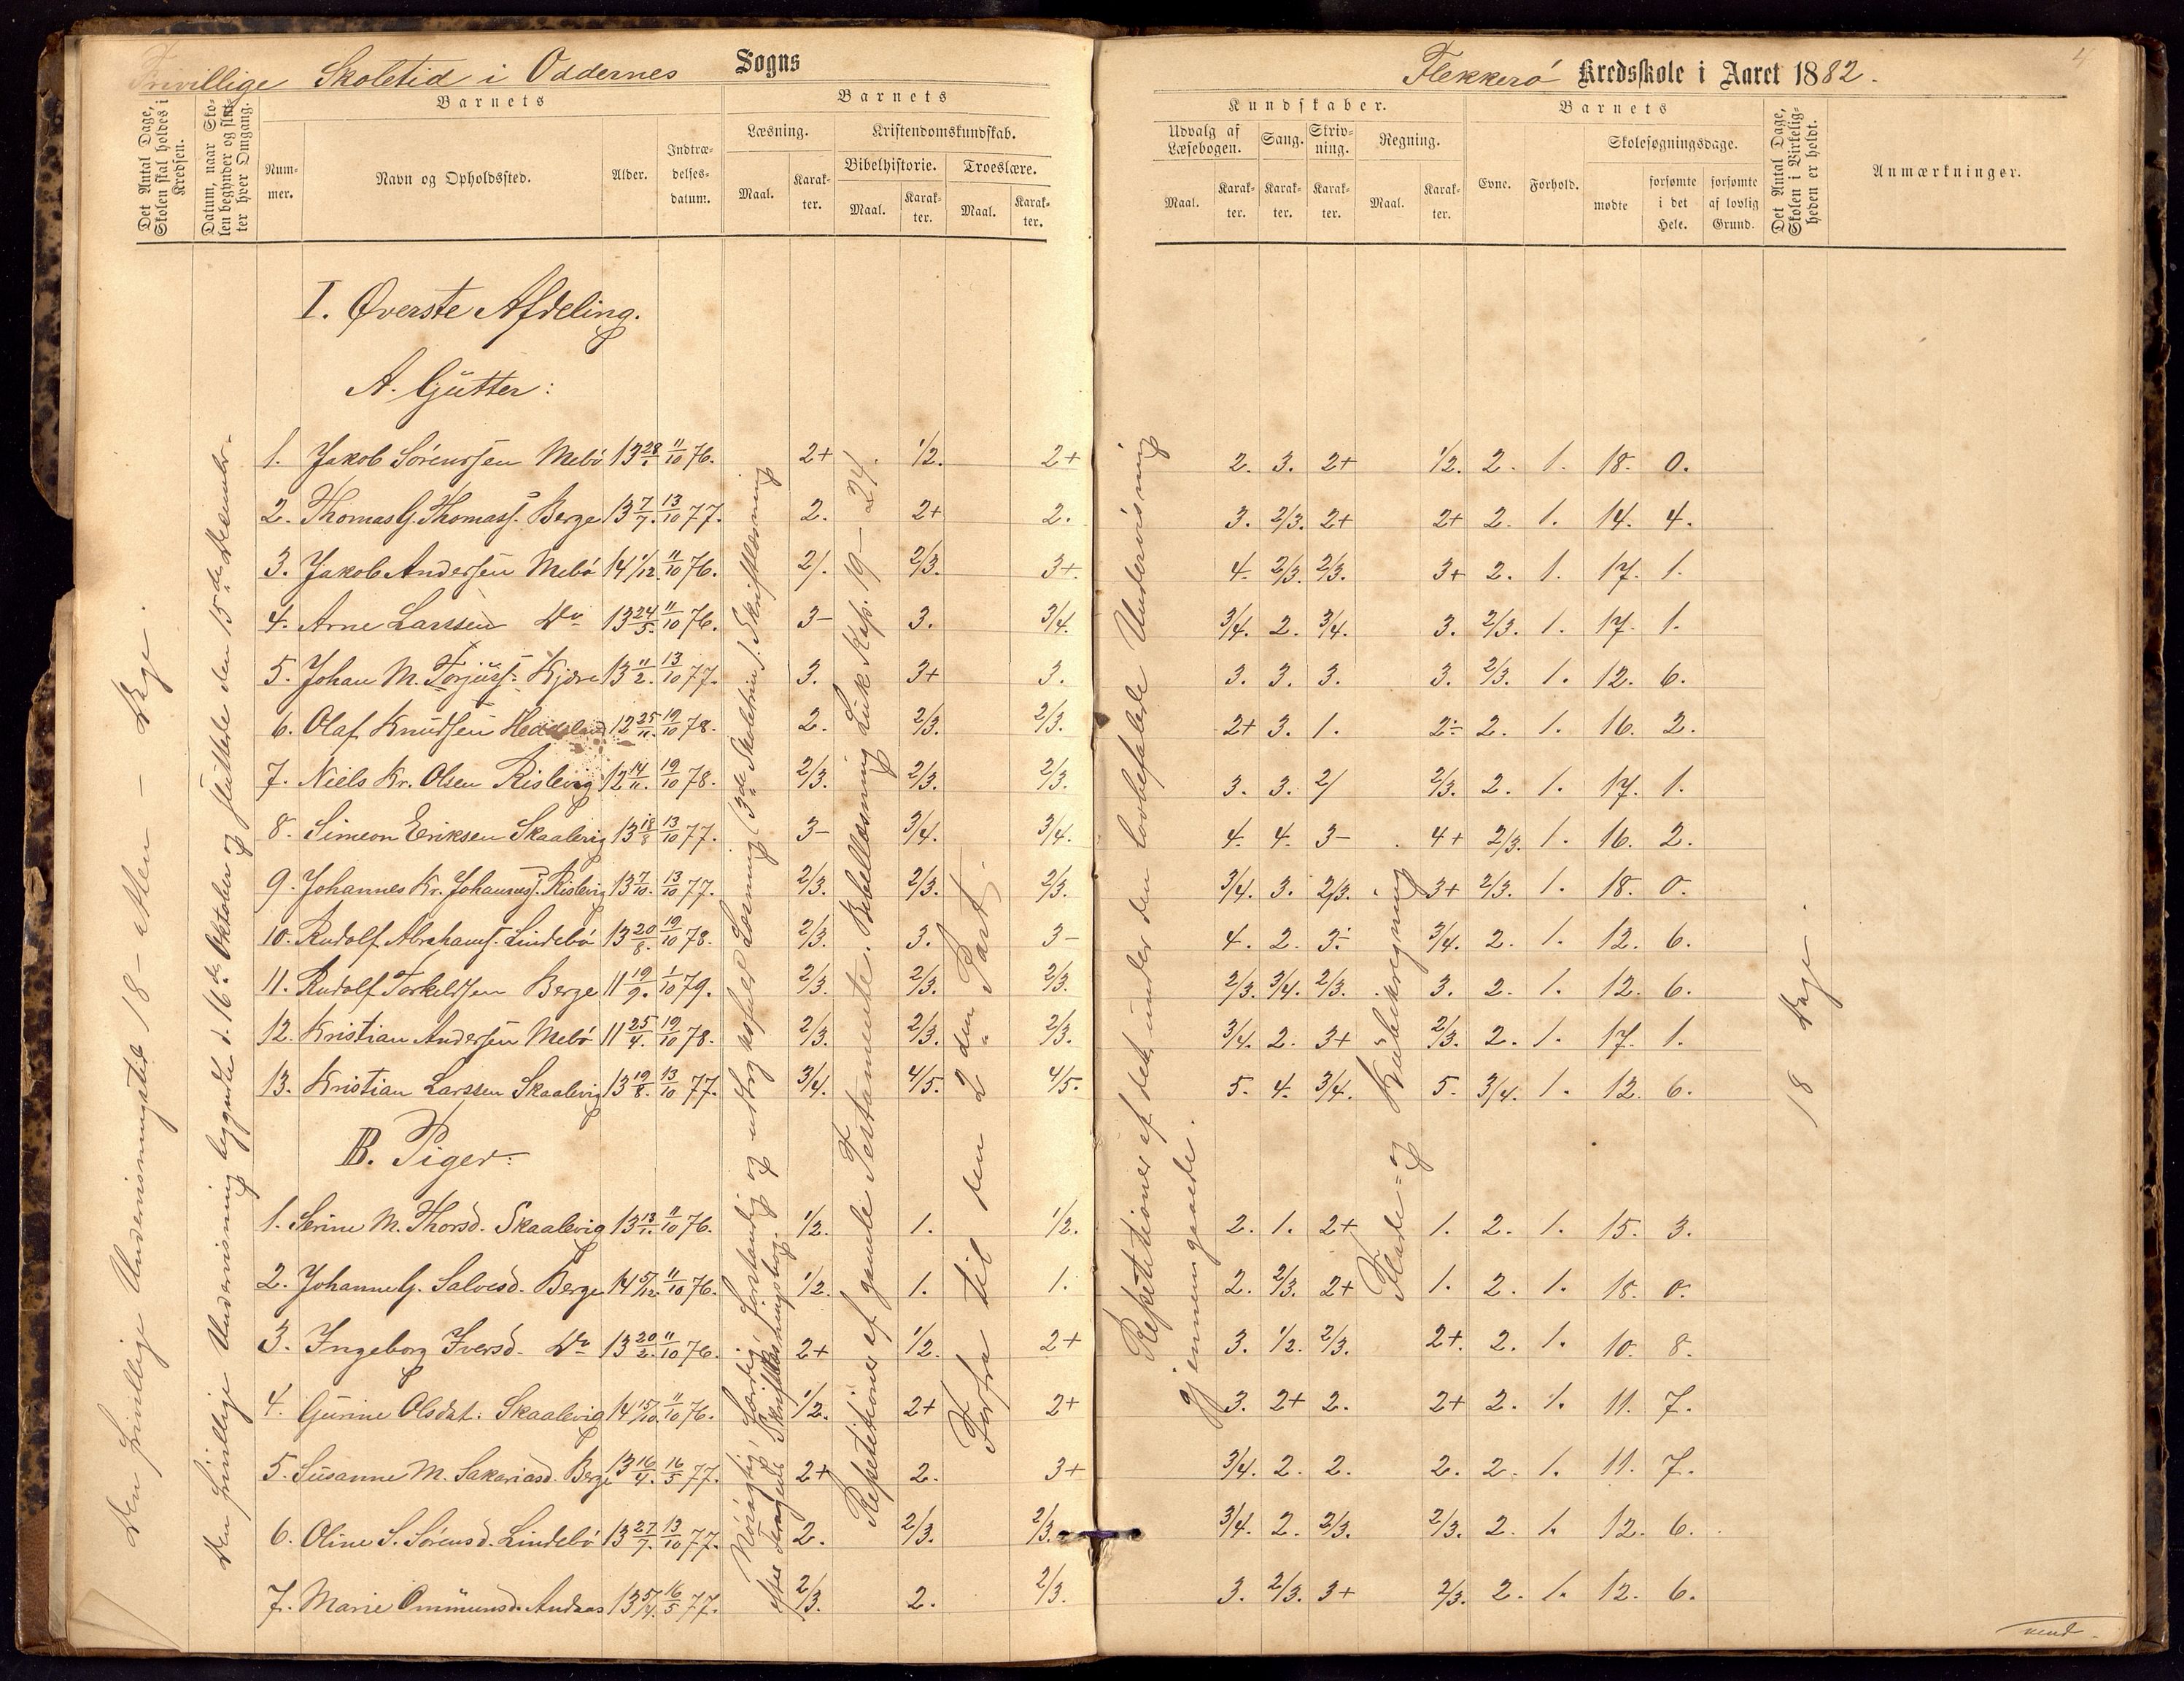 Frivillige Skoletid i Oddernes Sogns
Det Antal Dage, Skolen skal holdes i Kredsen.
Datum, naar Skolen begynder og slutter hver Omgang.
Barnets
Nummer.
Navn og Opholdssted.
Alder.
Indtrædelsesdatum.
Barnets
Læsning.
Maal.
Karakter.
Kristendomskundskab.
Bibelhistorie.
Maal.
Karakter.
Troeslære.
Maal.
Karakter.
Den frivillige Undervisningstid 18 - atten - Dage.
Den frivillige Undervisning begyndte d. 16de Oktober og sluttede den 15de Decembr.
I. Øverste Afdeling.
A. Gutter:
1. Jakob Sörenssen Mebö 13 28/1 11/10 76. 2+ 1/2. 2+
2. Thomas G. Thomass. Berge 13 7/7. 13/10 77. 2. 2+ 2.
3. Jakob Andersen Mebö 14 1/12. 11/10 76. 2/. 2/3. 3+
4. Arne Larssen Do 13 24/5. 11/10 76. 3- 3. 3/4.
5. Johan M. Torjuss. Kjære 13 11/2. 13/10 77. 3. 3+ 3.
6. Olaf Knudsen Heddeland 12 25/11. 19/10 78. 2. 2/3. 2/3.
7. Niels Kr. Olsen Rislevig 12 14/11. 19/10 78. 2/3. 2/3. 2/3.
8. Simeon Eriksen Skaalevig 13 18/8 13/10 77. 3- 3/4. 3/4.
9. Johannes Kr. Johanness. Rislevig 13 7/10. 13/10 77. 2/3. 2/3. 2/3.
10. Rudolf Abrahams. Lindebö 13 20/8. 19/10 78. 2/3. 3. 3-
11. Rudolf Torkeldsen Berge 11 19/9. 1/10 79. 2/3. 2/3. 2/3.
12. Kristian Andersen Mebö 11 25/4. 19/10 78. 2/3. 2/3. 2/3.
13. Kristian Larssen Skaalevig 13 19/8. 13/10 77. 3/4. 4/5. 4/5.
B. Piger:
1. Serine M. Thorsd. Skaalevig 13 13/1. 11/10 76. 1/2. 1. 1/2.
2. Johanne G. Salvesd. Berge 14 5/12. 11/10 76. 1/2. 1. 1.
3. Ingeborg Iversd. Do 13 20/2. 11/10 76. 2+ 1/2. 2+
4. Gurine Olsdat: Skaalevig 14 15/10. 11/10 76. 1/2. 2+ 2+
5. Susanne M. Sakariasd. Berge 13 16/4. 16/5 77. 2+ 2. 3+
6. Oline S. Sörensd. Lindebö 13 27/7. 13/10 77. 2. 2/3. 2/3.
7. Marie Ommunsd. Andaas 13 5/4. 16/5 77. 2/3. 2. 2/3.
Nöiagtig, færdig, forstandig og udtryksfuld Læsning (3de Skoletrin). Skriftlæsning
efter Skriftlæsningsbog.
Repetitioner af gamle Testamente. Bibellæsning Luk. Kap. 19 - 24.
Forfra til den 2den Part.
Flekkerö Kredsskole i Aaret 1882.
4
Kundskaber.
Udvalg af Læsebogen.
Maal.
Karakter.
Sang.
Karakter.
Skrivning.
Karakter.
Regning.
Maal.
Karakter.
Barnets
Evne.
Forhold.
Skolesøgningsdage.
mødte
forsømte i det Hele.
forsømte af lovlig Grund.
Det Antal Dage, Skolen i Virkeligheden er holdt.
Anmærkninger.
2. 3. 2+ 1/2. 2. 1. 18. 0.
3. 2/3. 2+ 2+ 2. 1. 14. 4.
4. 2/3. 2/3. 3+ 2. 1. 17. 1.
3/4. 2. 3/4. 3. 2/3. 1. 17. 1.
3. 3. 3. 3. 2/3. 1. 12. 6.
2+ 3. 1. 2÷ 2. 1. 16. 2.
3. 3. 2/ 2/3. 2. 1. 17. 1.
4. 4. 3- 4+ 2/3. 1. 16. 2.
3/4. 3. 2/3. 3+ 2/3. 1. 18. 0.
4. 2. 3÷ 3/4. 2. 1. 12. 6.
2/3. 3/4. 2/3. 3. 2. 1. 12. 6.
3/4. 2. 3+ 2/3. 2. 1. 17. 1.
5. 4. 3/4. 5. 3/4. 1. 12. 6.
2. 1. 2+ 1. 2. 1. 15. 3.
2. 2/3. 2+ 1. 2. 1. 18. 0.
3. 1/2. 2/3. 2+. 2. 1. 10. 8.
3. 2+ 2. 2+ 2. 1. 11. 7.
3/4. 2. 2. 2. 2. 1. 11. 7.
3/4. 2. 2/3. 2/3. 2. 1. 12. 6.
3. 2/3. 3+ 2/3. 2. 1. 12. 6.
Repetitioner af det under den lovbefalede Undervisning
gjennemgaaede.
Flade- og Kubikregning
18 Dage.
vend.